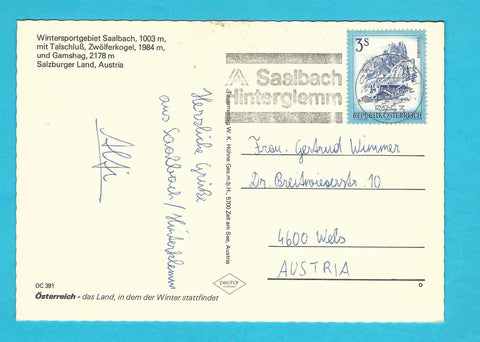 Wintersportgebiet Saalbach, 1003 m,
mit Talschluß, Zwölferkogel, 1984 m,
und Gamshag, 2178 m
Salzburger Land, Austria
Herzliche Grüße
aus Saalbach/Hinterglemm
Alfi
W. K. Höhne Ges.m.b.H., 5700 Zell am See, Austria
Saalbach
Hinterglemm
3S
REPUBLIK ÖSTERREICH
Frau Gertrud Wimmer
Dr. Breitwieserstr. 10
4600 Wels
AUSTRIA
OC 391
Österreich - das Land, in dem der Winter stattfindet